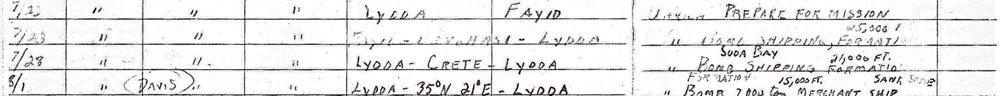 7/23 " " LYDDA FAYID " PREPARE FOR MISSION
25,000 F
7/23 " " FAYID - - LYDDA " BOMB SHIPPING, FORMATIO
SUDA BAY 21,000 FT.
7/28 " " LYDDA - CRETE - LYDDA " BOMB SHIPPING FORMATION
FORMATION 15,000 FT. SANK SOME
8/1 " (DAVIS) " LYDDA - 35°N 21°E - LYDDA " BOMB 7000 ton MERCHANT SHIP